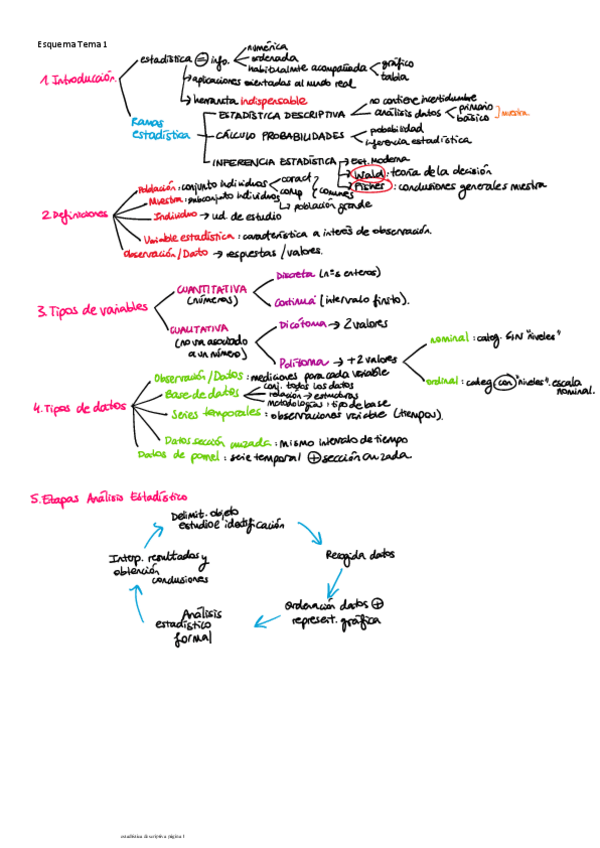 Esquema Tema 1
1. Introducción.
estadística = info.
numérica
ordenada
habitualmente acompañada
gráfico
tabla
aplicaciones orientadas al mundo real
herramta indispensable
Ramas estadística
ESTADÍSTICA DESCRIPTIVA
no contiene incertidumbre
análisis datos
primario
básico
muestra
CÁLCULO PROBABILIDADES
probabilidad
inferencia estadística
INFERENCIA ESTADÍSTICA
est. Moderna
Wald : teoría de la decisión
Fisher : conclusiones generales muestra
2. Definiciones
Población : conjunto individuos
caract
comp
comunes
Muestra : subconjunto individuos
población grande
Individuo → ud. de estudio
Variable estadística : característica a interés de observación.
Observación / Dato → respuestas / valores.
3. Tipos de variables
CUANTITATIVA
(números)
Discreta (nºs enteros)
Continua (intervalo finito).
CUALITATIVA
(no va asociado
a un número)
Dicótoma → 2 valores
Polítoma → +2 valores
nominal : categ. SIN "niveles"
ordinal : categ con "niveles". escala
nominal.
4. Tipos de datos
Observación / Datos : mediciones para cada variable
Base de datos
conj. todos los datos
relación → estructuras
metodologías : tipo de base
Series temporales : observaciones variable (tiempos).
Datos sección cruzada : mismo intervalo de tiempo
Datos de panel : serie temporal + sección cruzada.
5. Etapas Análisis Estadístico
Delimit. objeto
estudio e identificación
Recogida datos
Ordenación datos +
represent. gráfica
Análisis
estadístico
formal
Interp. resultados y
obtención
conclusiones
estadística descriptiva página 1